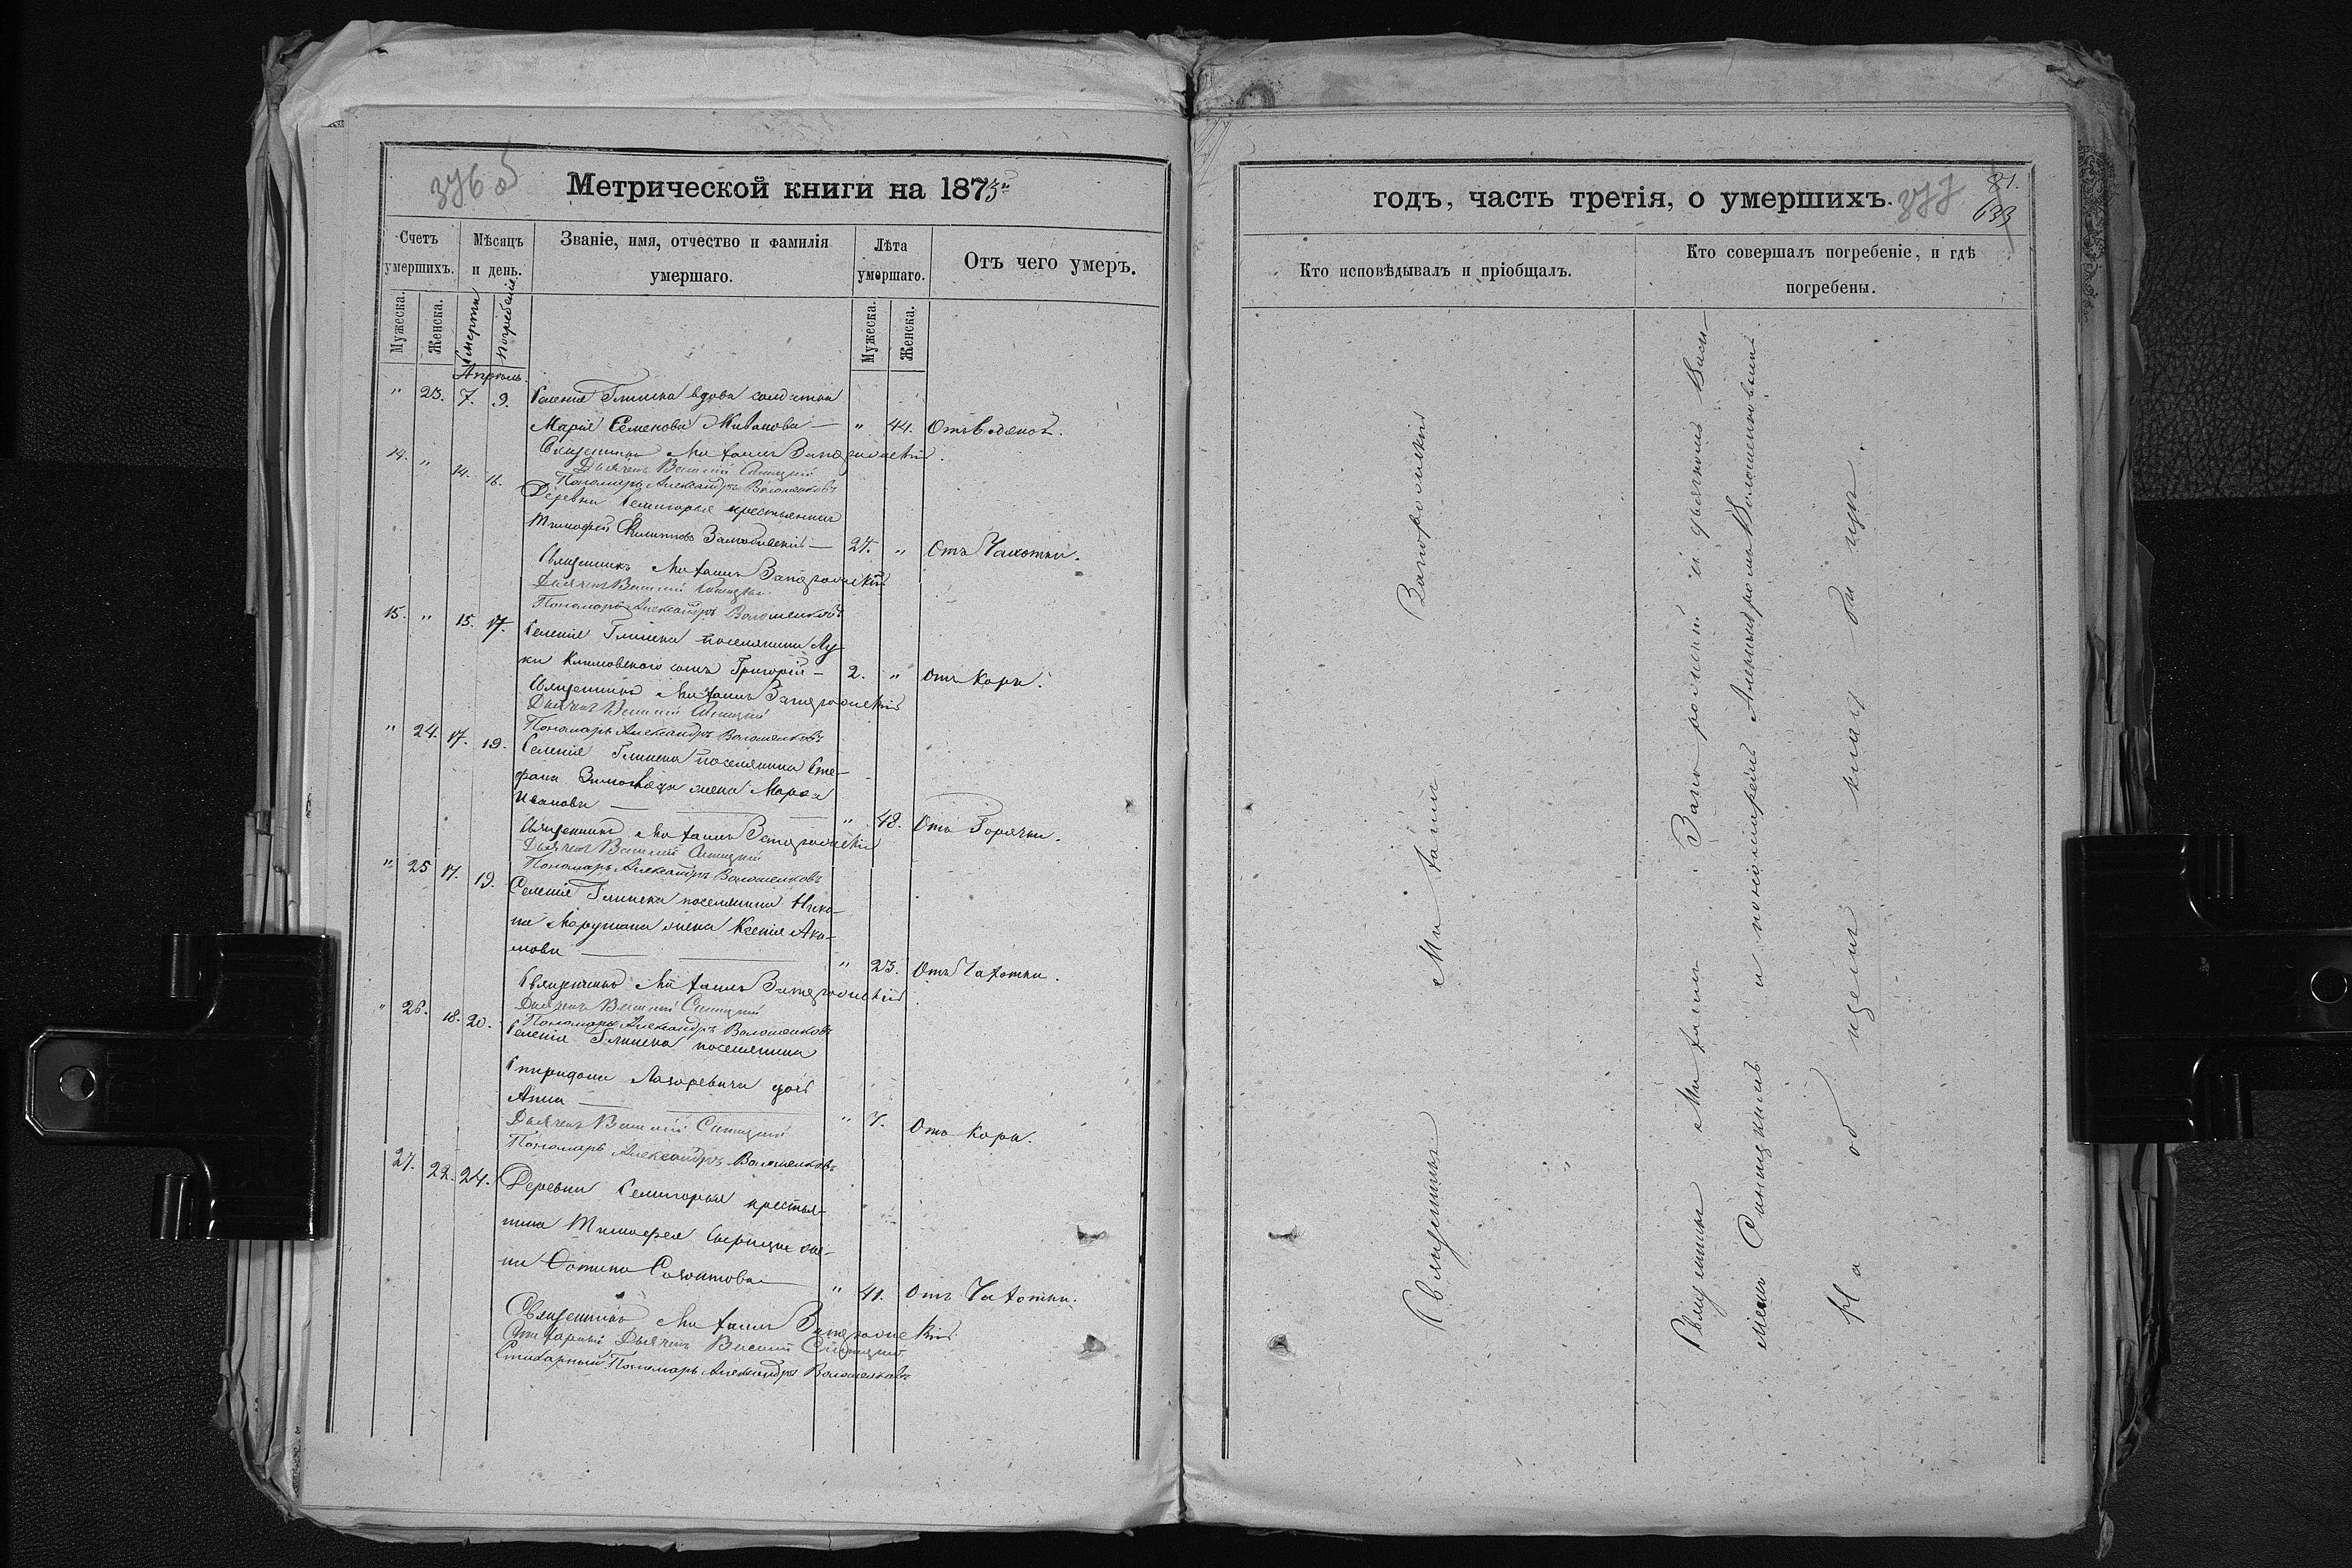 376 об
Метрической книги на 1873й
Счетъ умершихъ.
Мѣсяцъ и день.
Званіе, имя, отчество и фамилія умершаго.
Лѣта умершаго.
Отъ чего умеръ.
Мужеска.
Женска.
Смерти
Погребенія
Мужеска.
Женска.
Апрѣль.
" 23. 7. 9. Селенія Глинска вдова солдатка
Марія Семенова — " 44. Отъ Водяной.
Священникъ Михаилъ Запорожскій
Дьячекъ Василій Синицкій
Пономарь Александръ Волошенковъ
14. " 14. 16. Деревни Семигорья крестьянинъ
Тимофей Филиповъ — 27. " Отъ Чахотки.
Священникъ Михаилъ Запорожскій
Дьячекъ Василій Синицкій
Пономарь Александръ Волошенковъ
15. " 15. 17. Селенія Глинска поселянина Лу-
ки Климовского сынъ Григорій — 2. " Отъ Кори.
Священникъ Михаилъ Запорожскій
Дьячекъ Василій Синицкій
Пономарь Александръ Волошенковъ
" 24. 17. 19. Селенія Глинска поселянина Сте-
фана жена
Иванова — " 48. Отъ Горячки.
Священникъ Михаилъ Запорожскій
Дьячекъ Василій Синицкій
Пономарь Александръ Волошенковъ
" 25 17. 19. Селенія Глинска поселянина
жена Ксенія Аки-
мова — " 23. Отъ Чахотки.
Священникъ Михаилъ Запорожскій
Дьячекъ Василій Синицкій
Пономарь Александръ Волошенковъ
" 26. 18. 20. Селенія Глинска поселянина
Спиридона Лазаревича дочь
Анна — " 7. Отъ Кори.
Дьячекъ Василій Синицкій
Пономарь Александръ Волошенковъ
27. 22. 24. Деревни Семигорья крестья-
нина Тимофея
— " 41. Отъ Чахотки.
Священникъ Михаилъ Запорожскій
Стихарный Дьячекъ Василій Синицкій
Стихарный Пономарь Александръ Волошенковъ
годъ, часть третія, о умершихъ.
377
81.
633
Кто исповѣдывалъ и пріобщалъ.
Кто совершалъ погребеніе, и гдѣ погребены.
Священникъ Михаилъ Запорожскій
Священникъ Михаилъ Запорожскій съ дьячкомъ Васи-
ліемъ Синицкимъ и пономаремъ Александромъ Волошенковымъ
На общемъ кладбищѣ.